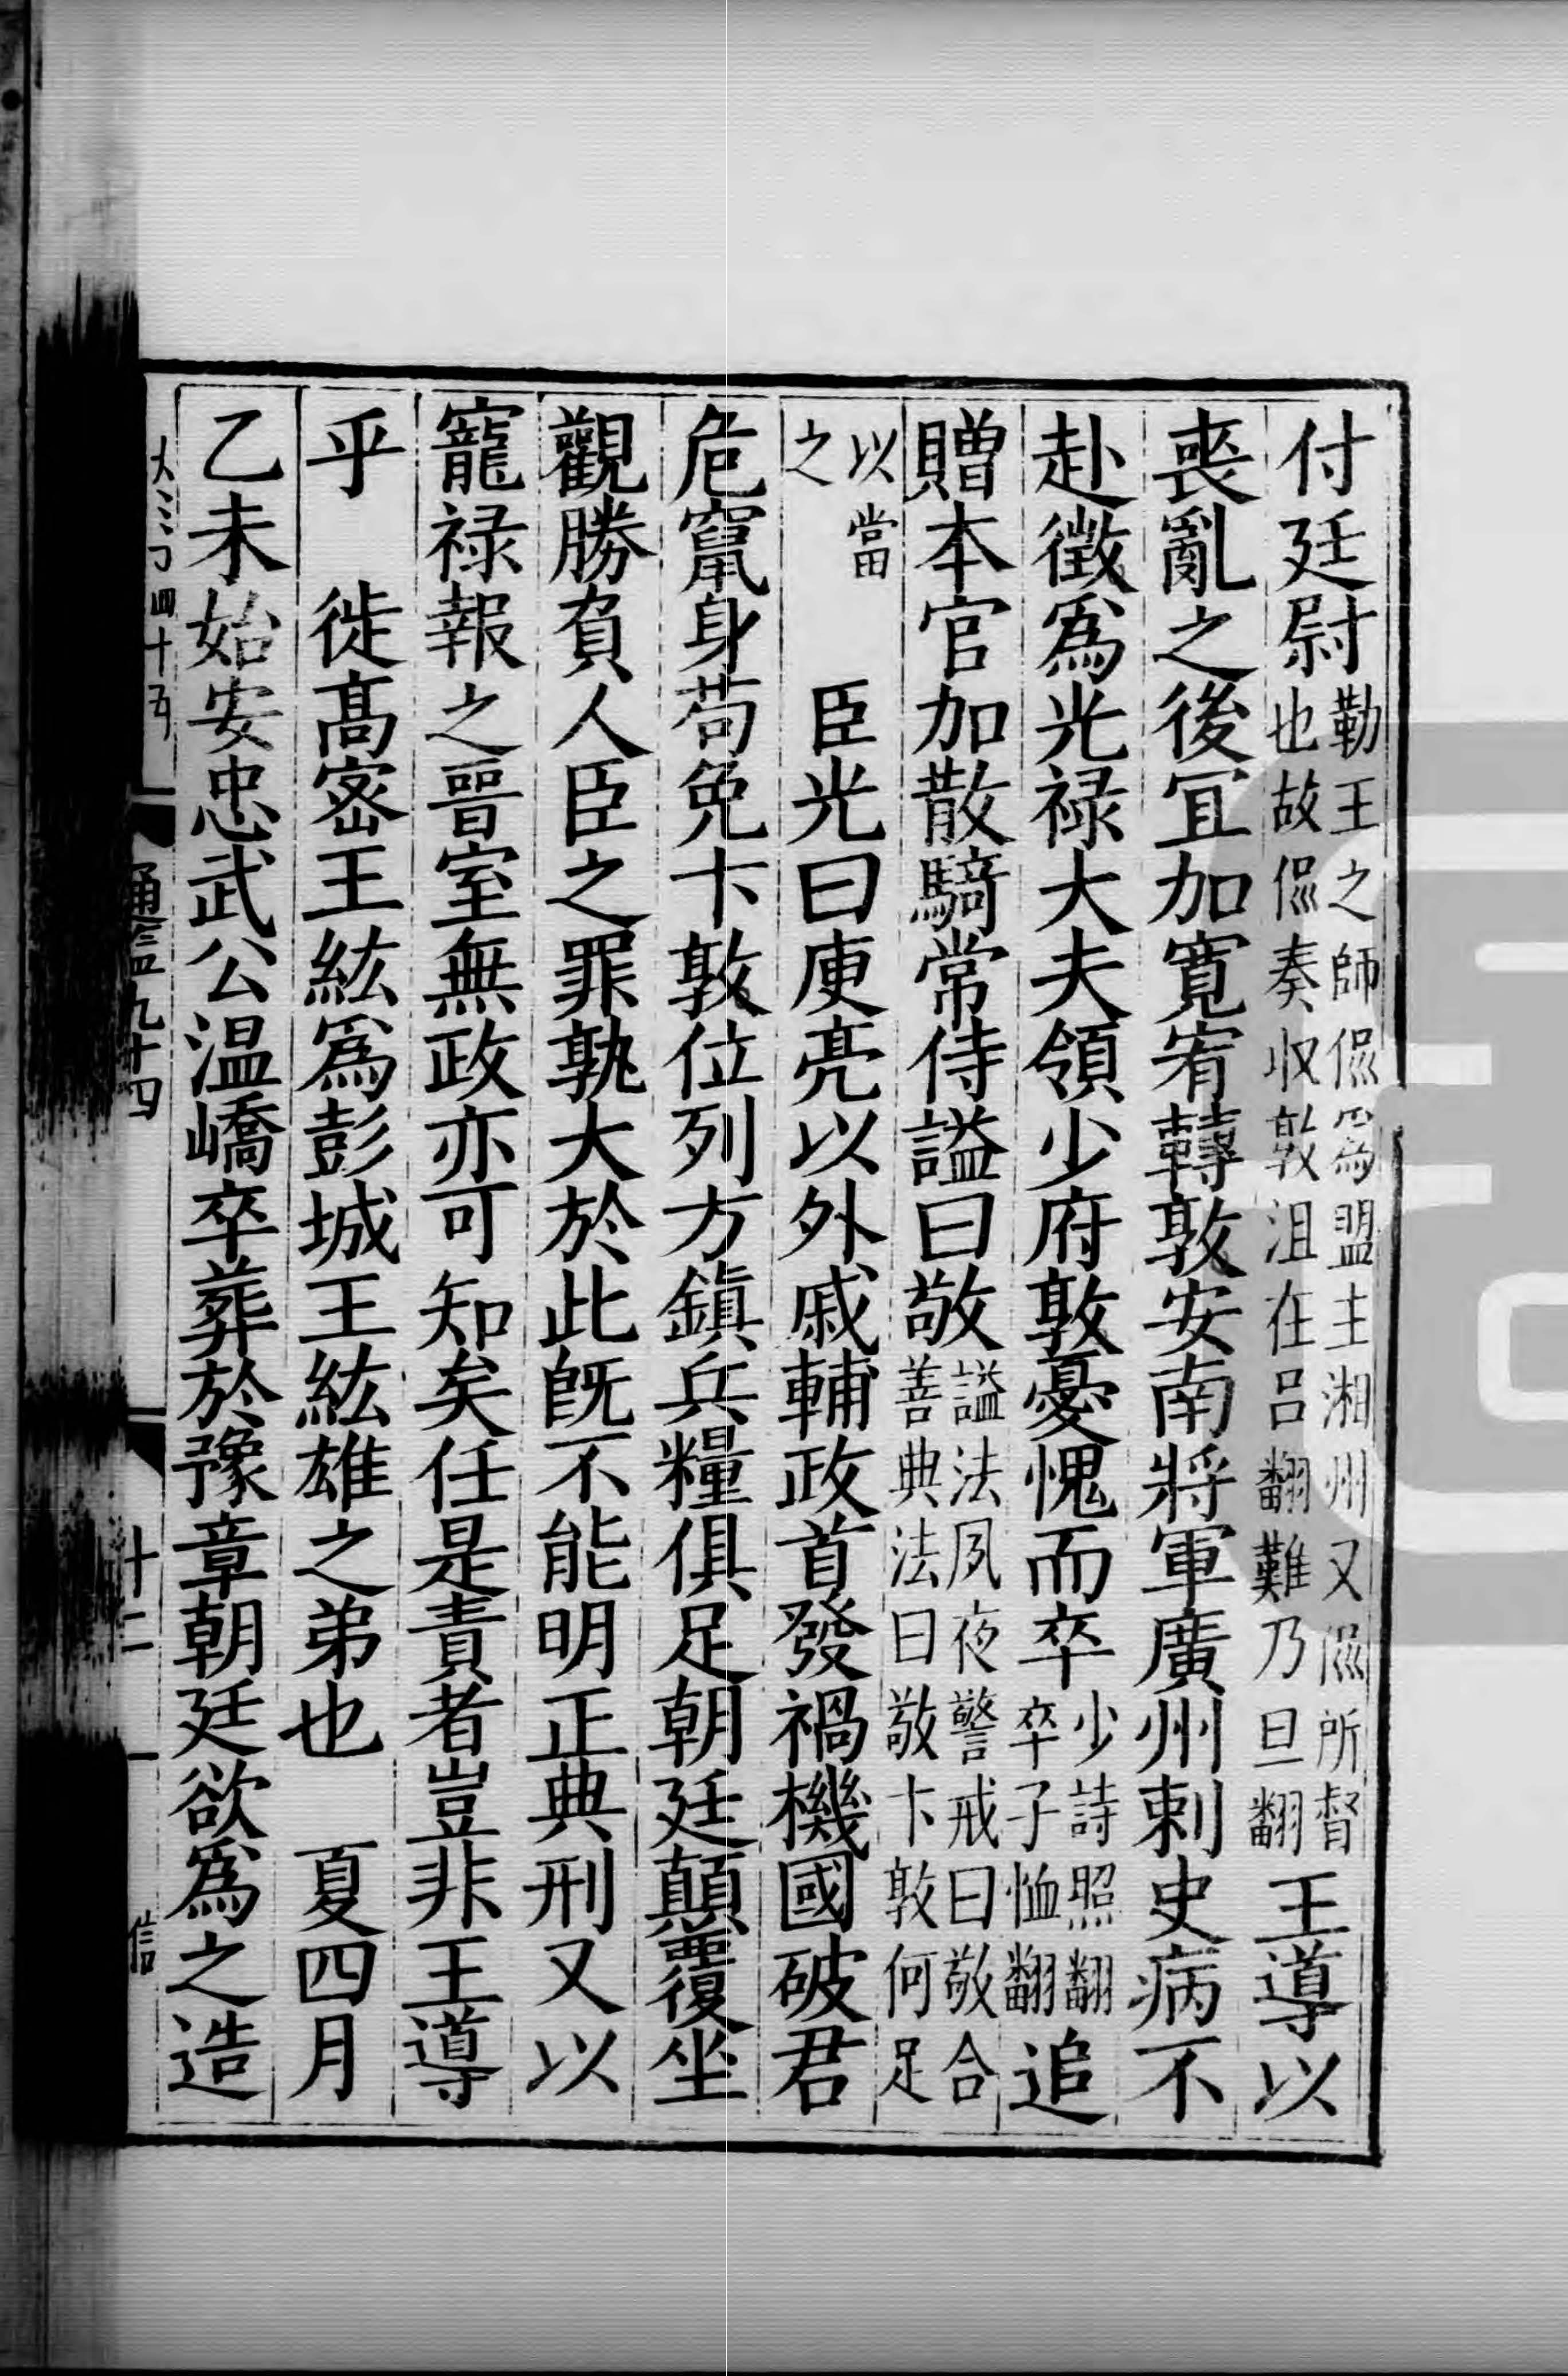 付廷尉勒王之師偘爲盟主湘州又偘所督也故偘奏收敦沮在呂翻難乃旦翻王導以
喪亂之後冝加寬宥轉敦安南將軍廣州刺史病不
赴徵爲光禄大夫領少府敦憂愧而卒少詩照翻卒子恤翻追
贈本官加散騎常侍謚曰敬謚法夙夜警戒曰敬合善典法曰敬卞敦何足
以當之　臣光曰庾亮以外戚輔政首發禍機國破君
危竄身苟免卞敦位列方鎭兵糧俱足朝廷顛覆坐
觀勝負人臣之罪孰大於此旣不能明正典刑又以
寵禄報之晉室無政亦可知矣任是責者豈非王導
乎　徙髙宻王紘爲彭城王紘雄之弟也　夏四月
乙未始安忠武公温嶠卒葬於豫章朝廷欲爲之造
四十五
通鑑九十四
十二
信